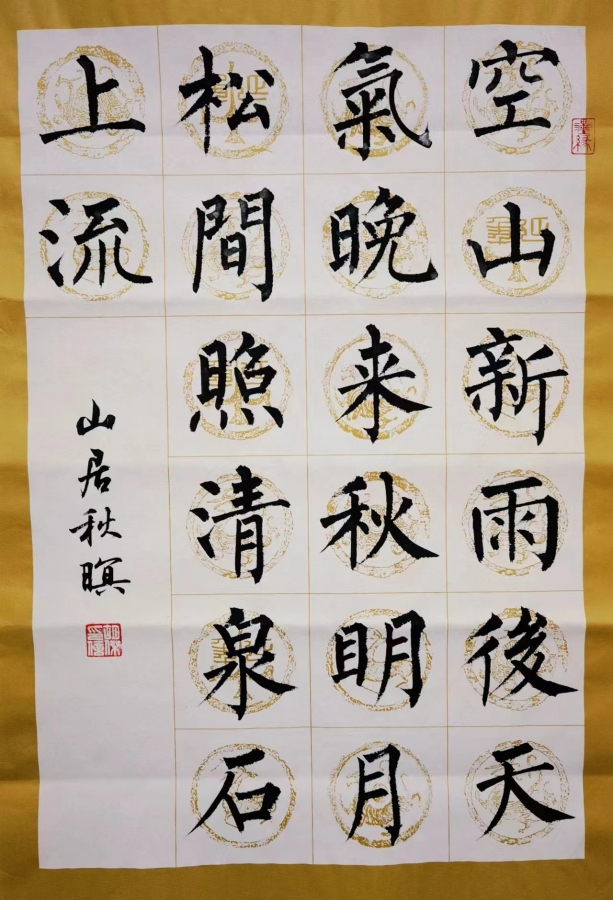 空山新雨後天
氣晚来秋明月
松間照清泉石
上流
山居秋暝